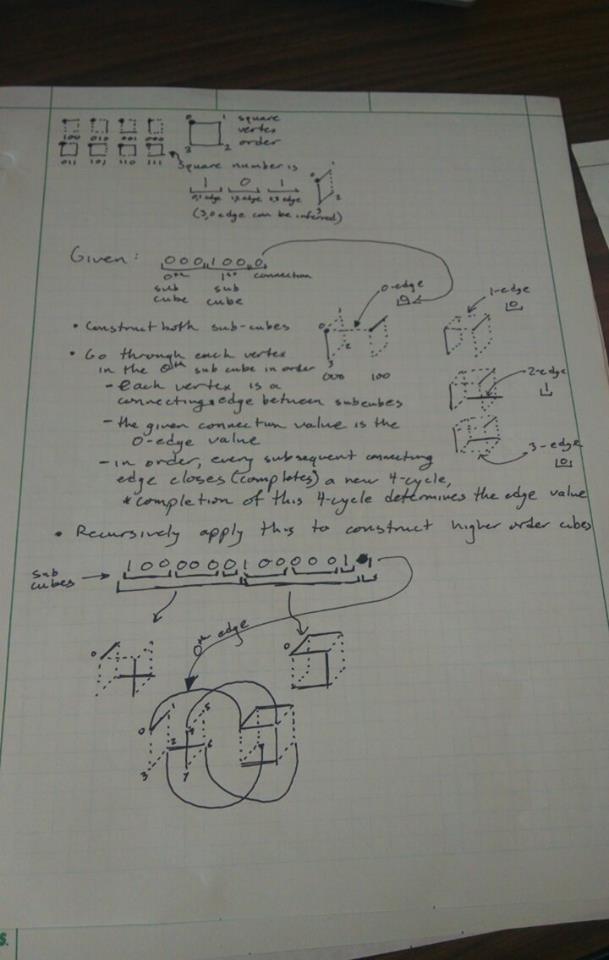 100 010 001 000
011 101 110 111
0 1 square
vertex
3 2 order
Square number is
1 0 1
0,1 edge 1,2 edge 2,3 edge
(3,0 edge can be inferred)
0 1
3 2
Given: 000 100 0
0th 1st connection
sub sub
cube cube
0-edge
0
1-edge
0
• Construct both sub-cubes
0
2
3
000 100
• Go through each vertex
in the 0th sub cube in order
- each vertex is a
connecting edge between subcubes
2-edge
1
- the given connection value is the
0-edge value
3-edge
0
- in order, every subsequent connecting
edge closes (completes) a new 4-cycle,
* completion of this 4-cycle determines the edge value
• Recursively apply this to construct higher order cubes
sub
cubes
100 000 0 100 000 1 1
0th edge
0
0
0 1 4 5
3 2 7 6
S.